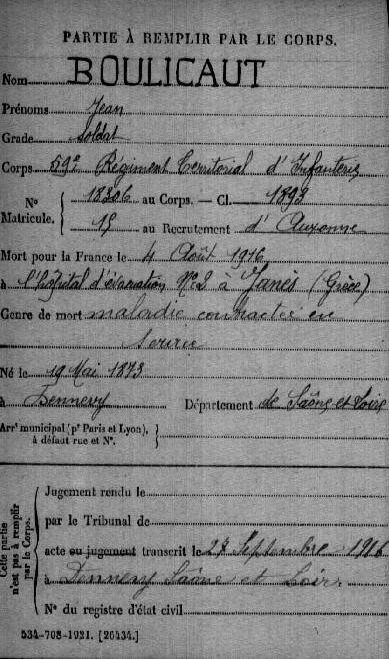 PARTIE À REMPLIR PAR LE CORPS.
Nom BOULICAUT
Prénoms Jean
Grade Soldat
Corps 59e Régiment Territorial d'Infanterie
N° Matricule. { 18306 au Corps. — Cl. 1893
15 au Recrutement d'Auxonne
Mort pour la France le 4 Août 1916
à l'hôpital d'évacuation N°2 à Janès (Grèce)
Genre de mort maladie contractée en
service
Né le 19 Mai 1873
à Dennevy Département de Saône et Loire
Arrt municipal (pr Paris et Lyon),
à défaut rue et N°.
Cette partie n'est pas à remplir par le Corps.
Jugement rendu le
par le Tribunal de
acte ou jugement transcrit le 28 Septembre 1916
à Dennevy Saône et Loire
N° du registre d'état civil
534-708-1921. [26434.]